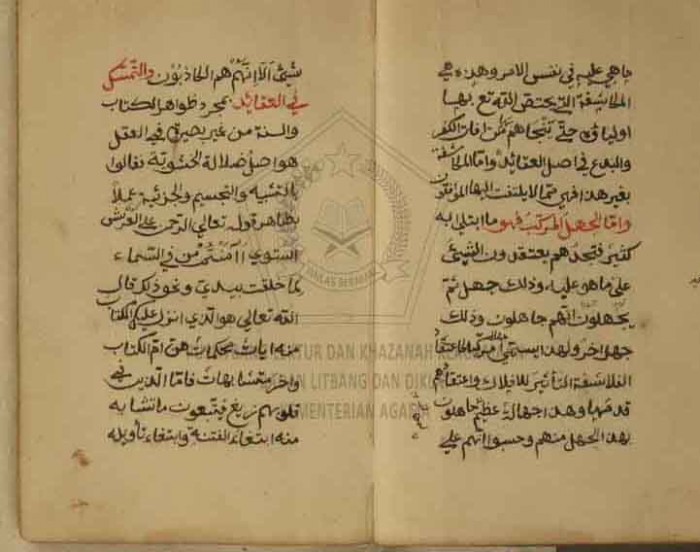 ما هي عليه في نفس الامر وهذه هي
المكاشفة التي يختص الله تع بها
اولياؤه حتى تنجاهم من افات الكفر
والبدع في اصل العقائد واما المكاشفة
بغير هذا فهي مما لا يلتفت اليها الموفقون
واما الجهل المركب فهو ما ابتلي به
كثير فتجدهم يعتقدون الشيئ
على ما هو عليه وذلك جهل ثم
يجهلون انهم جاهلون وذلك
جهل اخر ولهذا يسمى مركبا كاعتقاد
الفلاسفة التأثير للافلاك واعتقادهم
قدمها وهذا جهالة عظيم جاهلون
بهذا الجهل منهم وحسبوا انهم على
شيئ الا انهم هم الكاذبون والتمسك
في العقائد بمجرد ظواهر الكتاب
والسنة من غير بصيرة في العقل
هو اصل ضلالة الحشوية فقالوا
بالتشبيه والتجسيم والجزئية عملا
بظاهر قوله تعالى الرحمن على العرش
استوى أأمنتم من في السماء
لما خلقت بيدي ونحو ذلك قال
الله تعالى هو الذي انزل عليك الكتاب
منه ايات محكمات هن ام الكتاب
واخر متشابهات فاما الذين في
قلوبهم زيغ فيتبعون ما تشابه
منه ابتغاء الفتنة وابتغاء تأويله
IKHLAS BERAMAL
LEKTUR DAN KHAZANAH
DAN LITBANG DAN DIKLAT
KEMENTERIAN AGAMA